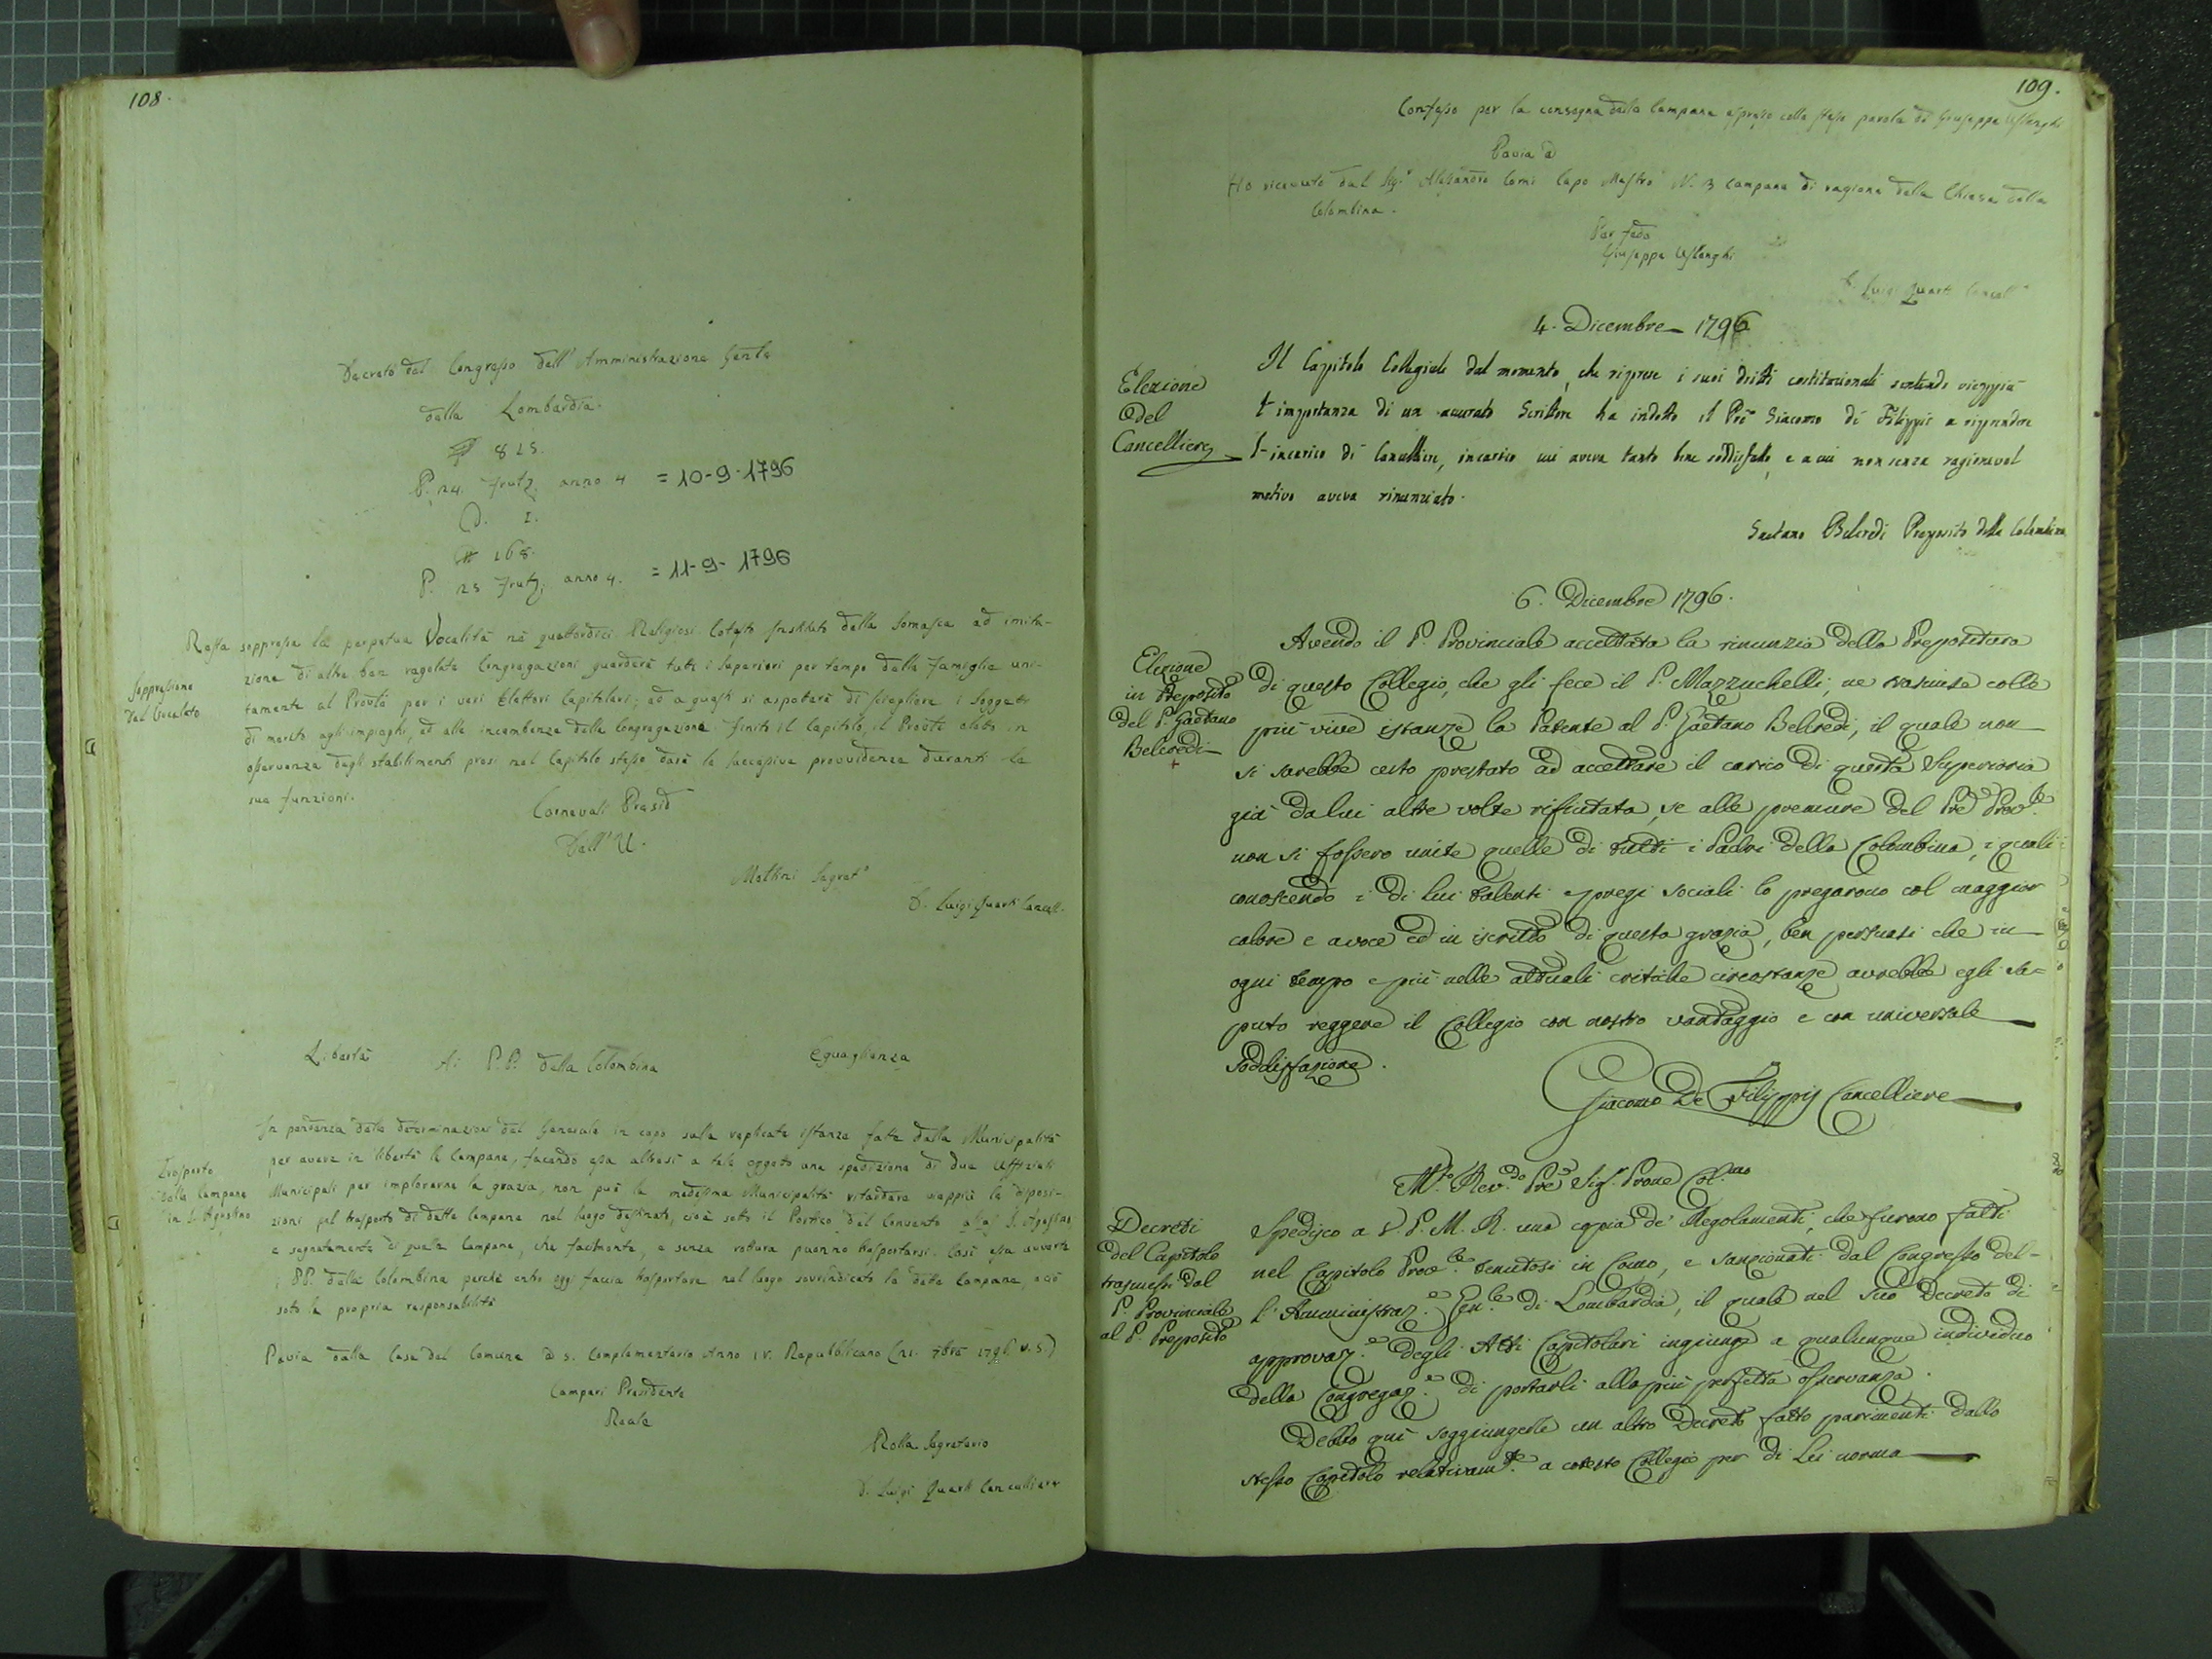 108.
Decreto del Congresso dell'Amministrazione Genle
della Lombardia.
825.
P. 24. Frutt. anno 4 = 10-9-1796
D. I.
168.
P. 25 Frutt. anno 4. = 11-9-1796
Soppressione
del Vocalato
Resta soppressa la perpetua Vocalità ne quattordici Religiosi. Cotesto Instituto della Somasca ad imita-
zione di altre ben regolate Congregazioni guarderà tutti i Superiori per tempo delle famiglie uni-
tamente al Provle per i veri Elettori Capitolari; ed a questi si aspeterà di scegliere i Soggetti
di merito agli impieghi, ed alle incombenze della Congregazione. Finito il Capitolo, il Provle eletto in
osservanza degli stabilimenti presi nel Capitolo stesso darà le successive provvidenze duranti le
sue funzioni.
Carnevali Presid
Dell'U.
Mattini Segret.o
D. Luigi Quarti Cancell.
Libertà Eguaglianza
Ai P.P. della Colombina
Trasporto
delle Campane
in S. Agostino
In pendenza delle determinazioni del Generale in capo sulle replicate istanze fatte dalla Municipalità
per avere in libertà le Campane, facendo essa altresì a tale oggetto una spedizione di due Uffiziali
Municipali per implorarne la grazia, non può la medesima Municipalità ritardare vieppiù le disposi-
zioni pel trasporto di dette Campane nel luogo destinato, cioè sotto il Portico del Convento di S. Agostino,
e segnatamente di quelle Campane, che facilmente, e senza rottura puonno trasportarsi. Così essa avverte
i PP. della Colombina perchè entro oggi faccia trasportare nel luogo sovrindicato le dette Campane, e ciò
sotto la propria responsabilità
Pavia dalla Casa del Comune 5. Complementario Anno IV. Repubblicano (21. 7bre 1796 V.S.)
Campari Presidente
Reale
Rolla Segretario
D. Luigi Quarti Cancelliere
109.
Confesso per la consegna delle Campane espresso colle stesse parole di Giuseppe Uslenghi
Pavia
Ho ricevuto dal Sig.r Alesandro Corni Capo Mastro N. 3 Campane di ragione della Chiesa della
Colombina.
Per fede
Giuseppe Uslenghi
D. Luigi Quarti Cancell.e
4. Dicembre 1796
Elezione
del
Cancelliere
Il Capitolo Collegiale dal momento, che riprese i suoi dritti costituzionali sentendo vieppiù
l'importanza di un accurato Scrittore ha indotto il Pre Giacomo De Filippis a riprendere
l'incarico di Cancelliere, incarico cui aveva tanto bene soddisfatto, e a cui non senza ragionevol
motivo aveva rinunziato.
Gaetano Belcredi Preposito della Colombina
6. Dicembre 1796.
Elezione
in Preposito
del P. Gaetano
Belcredi
+
Avendo il P. Provinciale accettata la rinunzia della Prepositura
di questo Collegio, che gli fece il P. Mazzuchelli, ne trasmise colle
più vive istanze la Patente al P. Gaetano Belcredi, il quale non
si sarebbe certo prestato ad accettare il carico di questa Superioria
già da lui altre volte rifiutata, se alle premure del Pre Prov.le
non si fossero unite quelle di tutti i Padri della Colombina, i quali
conoscendo i di lui talenti e pregi sociali lo pregarono col maggior
calore e a voce ed in iscritto di questa grazia, ben persuasi che in
ogni tempo e più nelle attuali critiche circostanze avrebbe egli sa=
puto reggere il Collegio con nostro vantaggio e con universale
soddisfazione.
Giacomo De Filippis Cancelliere
M.to Rev.do Pre Sig. Prone Col.mo
Decreti
del Capitolo
trasmessi dal
P. Provinciale
al P. Preposito
Spedisco a V. P. M. R. una copia de' Regolamenti, che furono fatti
nel Capitolo Prov.le tenutosi in Como, e sanzionati dal Congresso del-
l'Amministraz.e Gen.le di Lombardia, il quale nel suo Decreto di
approvaz.e degli Atti Capitolari ingiunge a qualunque individuo
della Congregaz.e di portarli alla più perfetta osservanza.
Debbo quì soggiungerle un altro Decreto fatto parimenti dallo
stesso Capitolo relativam.te a cotesto Collegio per di Lei norma